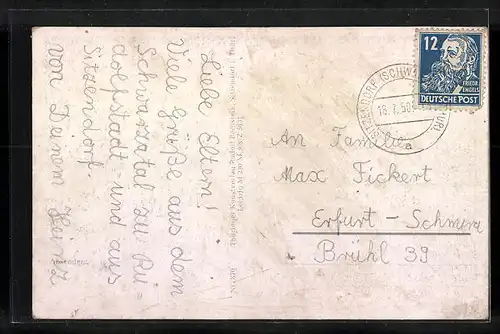 Liebe Eltern!
Viele Grüße aus dem
Schwarzatal zu Ru=
dolfstadt und aus
Sitzendorf.
von Deinem Heinz
An Familie
Max Fickert
Erfurt - Schmira
Brühl 39
12
FRIEDR.
ENGELS
DEUTSCHE POST
SITZENDORF (SCHW
18.7.50
a